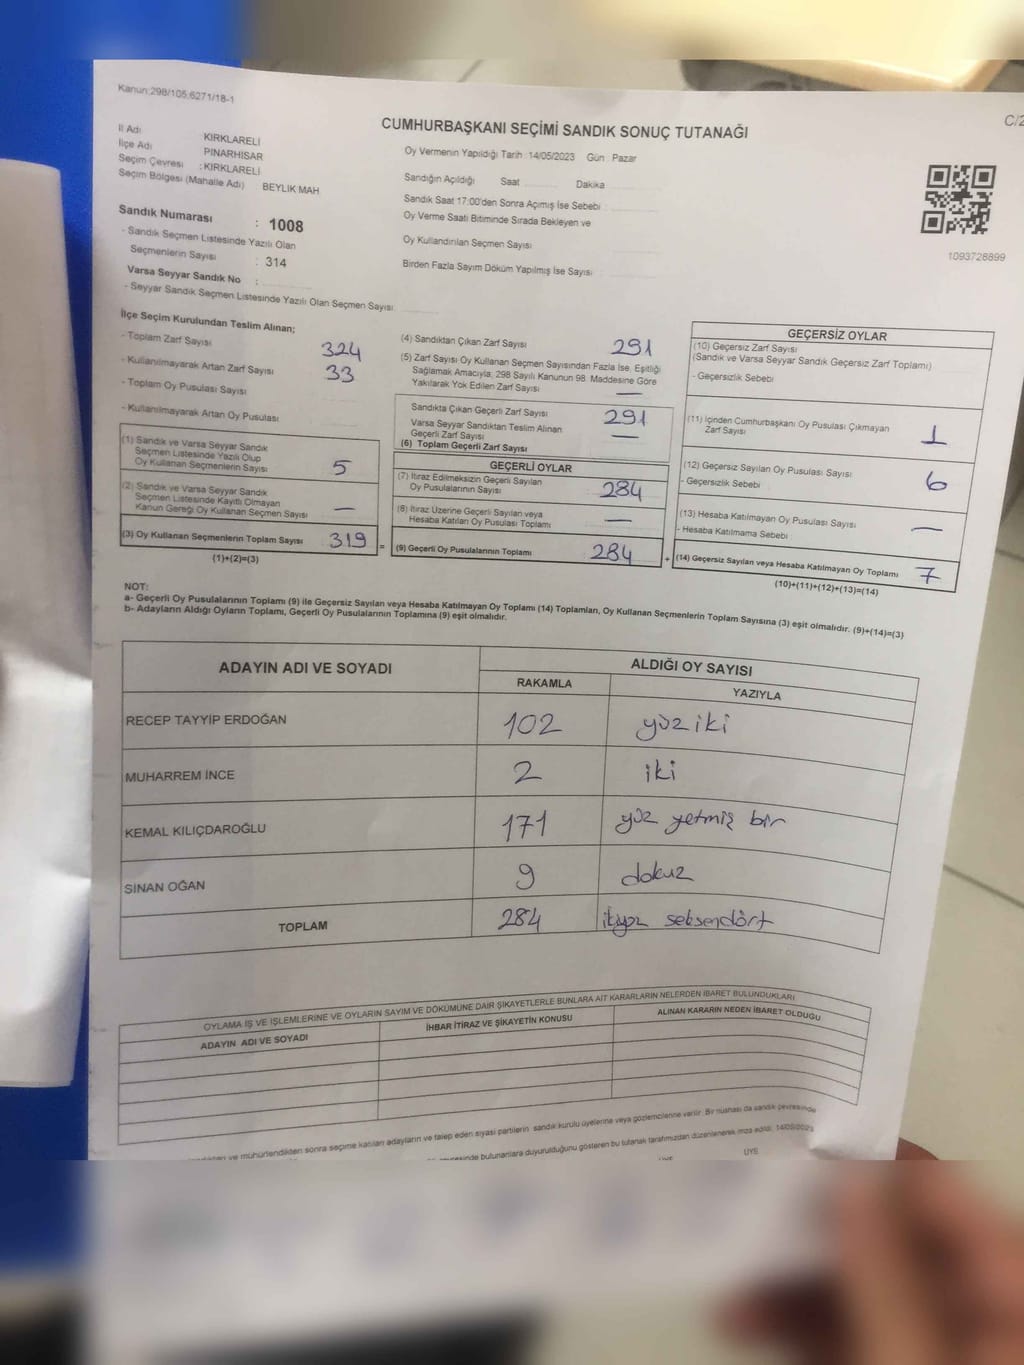 Kanun:298/105,6271/18-1
C/2
CUMHURBAŞKANI SEÇİMİ SANDIK SONUÇ TUTANAĞI
İl Adı KIRKLARELİ
İlçe Adı PINARHİSAR
Seçim Çevresi : KIRKLARELİ
Seçim Bölgesi (Mahalle Adı) BEYLİK MAH
Sandık Numarası : 1008
- Sandık Seçmen Listesinde Yazılı Olan
Seçmenlerin Sayısı : 314
Varsa Seyyar Sandık No :
- Seyyar Sandık Seçmen Listesinde Yazılı Olan Seçmen Sayısı
Oy Vermenin Yapıldığı Tarih : 14/05/2023 Gün : Pazar
Sandığın Açıldığı Saat Dakika
Sandık Saat 17:00'den Sonra Açımış İse Sebebi :
Oy Verme Saati Bitiminde Sırada Bekleyen ve
Oy Kullandırılan Seçmen Sayısı
Birden Fazla Sayım Döküm Yapılmış İse Sayısı :
1093728899
İlçe Seçim Kurulundan Teslim Alınan;
- Toplam Zarf Sayısı 324
- Kullanılmayarak Artan Zarf Sayısı 33
- Toplam Oy Pusulası Sayısı
- Kullanılmayarak Artan Oy Pusulası
(1) Sandık ve Varsa Seyyar Sandık
Seçmen Listesinde Yazılı Olup
Oy Kullanan Seçmenlerin Sayısı 5
(2) Sandık ve Varsa Seyyar Sandık
Seçmen Listesinde Kayıtlı Olmayan
Kanun Gereği Oy Kullanan Seçmen Sayısı —
(3) Oy Kullanan Seçmenlerin Toplam Sayısı 319 =
(1)+(2)=(3)
(4) Sandıktan Çıkan Zarf Sayısı 291
(5) Zarf Sayısı Oy Kullanan Seçmen Sayısından Fazla İse, Eşitliği
Sağlamak Amacıyla; 298 Sayılı Kanunun 98. Maddesine Göre
Yakılarak Yok Edilen Zarf Sayısı —
Sandıkta Çıkan Geçerli Zarf Sayısı 291
Varsa Seyyar Sandıktan Teslim Alınan
Geçerli Zarf Sayısı —
(6) Toplam Geçerli Zarf Sayısı
GEÇERLİ OYLAR
(7) İtiraz Edilmeksizin Geçerli Sayılan
Oy Pusulalarının Sayısı 284
(8) İtiraz Üzerine Geçerli Sayılan veya
Hesaba Katılan Oy Pusulası Toplamı —
(9) Geçerli Oy Pusulalarının Toplamı 284 +
GEÇERSİZ OYLAR
(10) Geçersiz Zarf Sayısı
(Sandık ve Varsa Seyyar Sandık Geçersiz Zarf Toplamı)
- Geçersizlik Sebebi
(11) İçinden Cumhurbaşkanı Oy Pusulası Çıkmayan
Zarf Sayısı 1
(12) Geçersiz Sayılan Oy Pusulası Sayısı 6
- Geçersizlik Sebebi
(13) Hesaba Katılmayan Oy Pusulası Sayısı —
- Hesaba Katılmama Sebebi
(14) Geçersiz Sayılan veya Hesaba Katılmayan Oy Toplamı 7
(10)+(11)+(12)+(13)=(14)
NOT:
a- Geçerli Oy Pusulalarının Toplamı (9) ile Geçersiz Sayılan veya Hesaba Katılmayan Oy Toplamı (14) Toplamları, Oy Kullanan Seçmenlerin Toplam Sayısına (3) eşit olmalıdır. (9)+(14)=(3)
b- Adayların Aldığı Oyların Toplamı, Geçerli Oy Pusulalarının Toplamına (9) eşit olmalıdır.
ADAYIN ADI VE SOYADI ALDIĞI OY SAYISI
RAKAMLA YAZIYLA
RECEP TAYYİP ERDOĞAN 102 yüz iki
MUHARREM İNCE 2 iki
KEMAL KILIÇDAROĞLU 171 yüz yetmiş bir
SİNAN OĞAN 9 dokuz
TOPLAM 284 ikiyüz seksendört
OYLAMA İŞ VE İŞLEMLERİNE VE OYLARIN SAYIM VE DÖKÜMÜNE DAİR ŞİKAYETLERLE BUNLARA AİT KARARLARIN NELERDEN İBARET BULUNDUKLARI
ADAYIN ADI VE SOYADI İHBAR İTİRAZ VE ŞİKAYETİN KONUSU ALINAN KARARIN NEDEN İBARET OLDUĞU
ve mühürlendikten sonra seçime katılan adayların ve talep eden siyasi partilerin sandık kurulu üyelerine veya gözlemcilerine verilir. Bir nüshası da sandık çevresinde
bulunanlara duyurulduğunu gösteren bu tutanak tarafımızdan düzenlenerek imza edildi. 14/05/2023
ÜYE